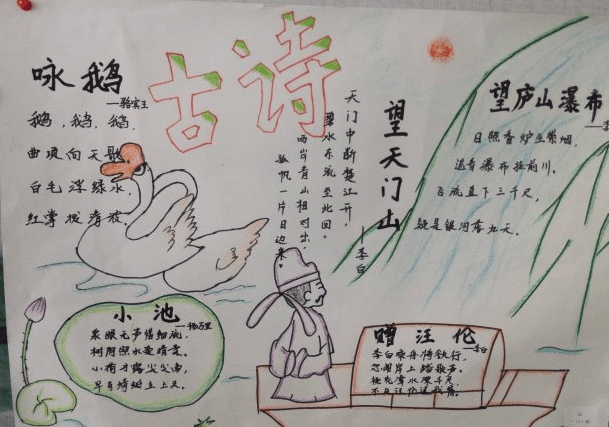 古诗
咏鹅
—骆宾王
鹅,鹅,鹅,
曲项向天歌
白毛浮绿水,
红掌拨清波。
天门中断楚江开,
碧水东流至此回。
两岸青山相对出,
孤帆一片日边来。
望天门山
—李白
望庐山瀑布
日照香炉生紫烟,
遥看瀑布挂前川。
飞流直下三千尺,
疑是银河落九天。
小池
—杨万里
泉眼无声惜细流,
树阴照水爱晴柔。
小荷才露尖尖角,
早有蜻蜓立上头。
赠汪伦
—李白
李白乘舟将欲行,
忽闻岸上踏歌声。
桃花潭水深千尺
不及汪伦送我情。